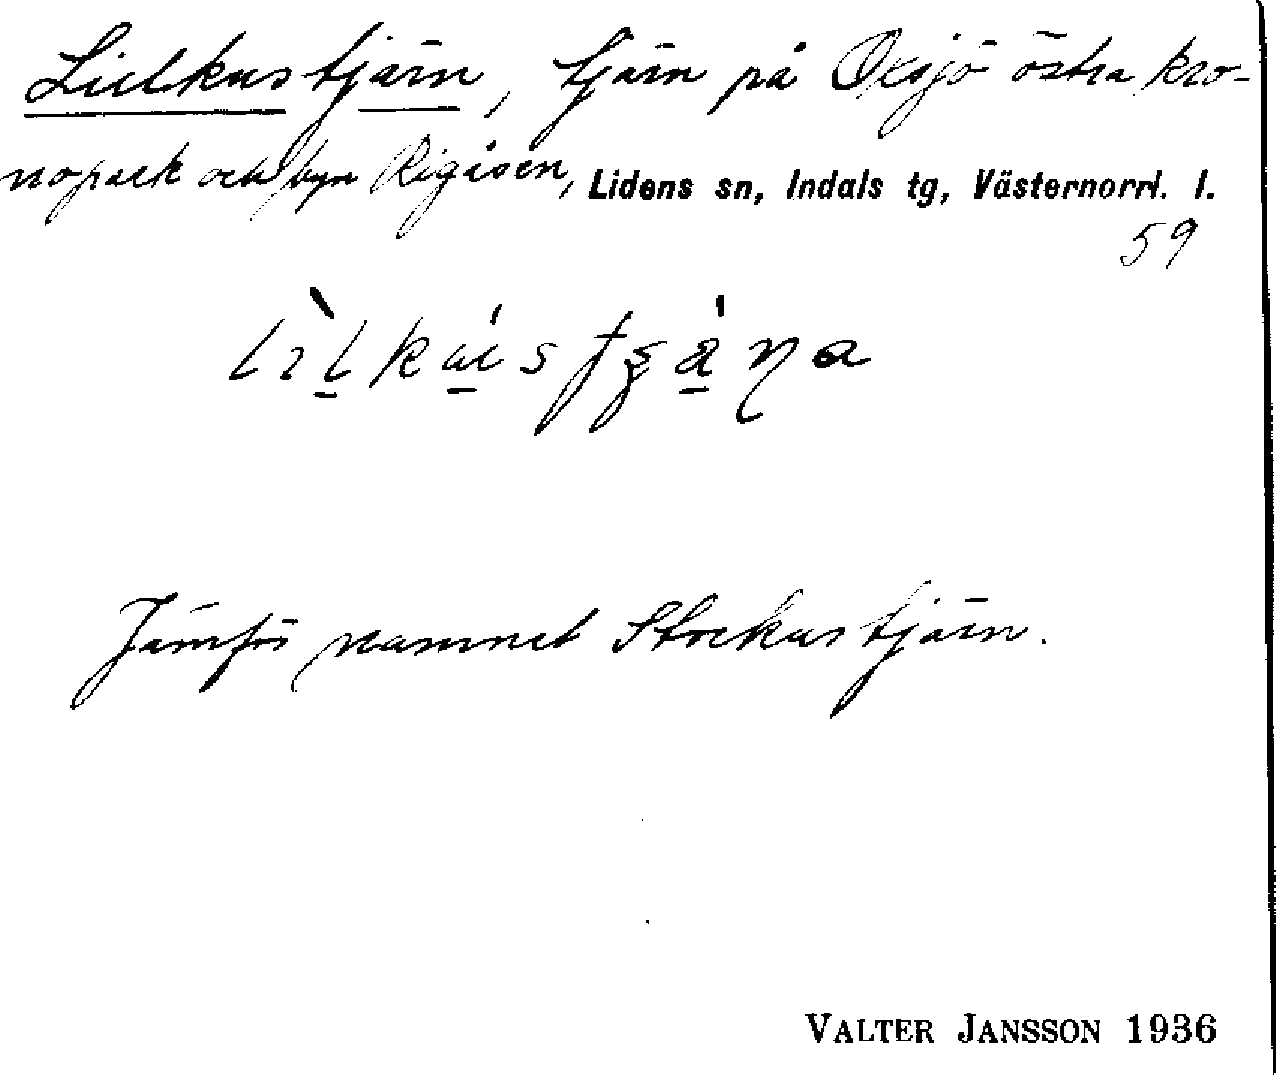 Lillkustjärn, tjärn på Oxsjö östra kro-
nopark och byn Rigåsen, Lidens sn, Indals tg, Västernorrl. l.
59
Jämför namnet Stockustjärn.
VALTER JANSSON 1936